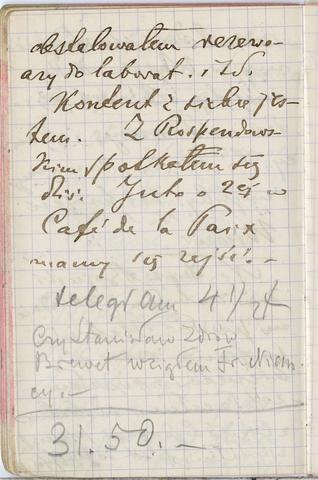 obstalowałem rezerwo-
ary do laborat. i t.d.
Kontent z siebie jes-
tem. Z Rospendows-
kim spotkałem się
dziś. Juto o 2ej w
Café de la Paix
mamy się zejść. -
telegram 4
Czy Stanisław Zdrów
Brevet wziąłem
cy. -
31.50. -